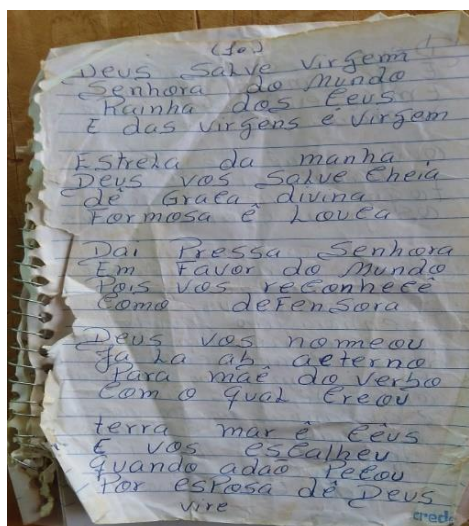 (10)
Deus Salve virgem
Senhora do mundo
Rainha dos Ceus
E das virgens e virgem
Estrela da manha
Deus vos Salve Cheia
dê Graca divina
Formosa ê Louca
Dai Pressa Senhora
Em Favor do mundo
Pois vos reconhecê
Como defensora
Deus vos nomeou
Ja La ab aeterno
Para maê do verbo
Com o qual Creou
terra mar ê Cêus
E vos escalheu
quando adao Pecou
Por esposa dê Deus
vire
credi